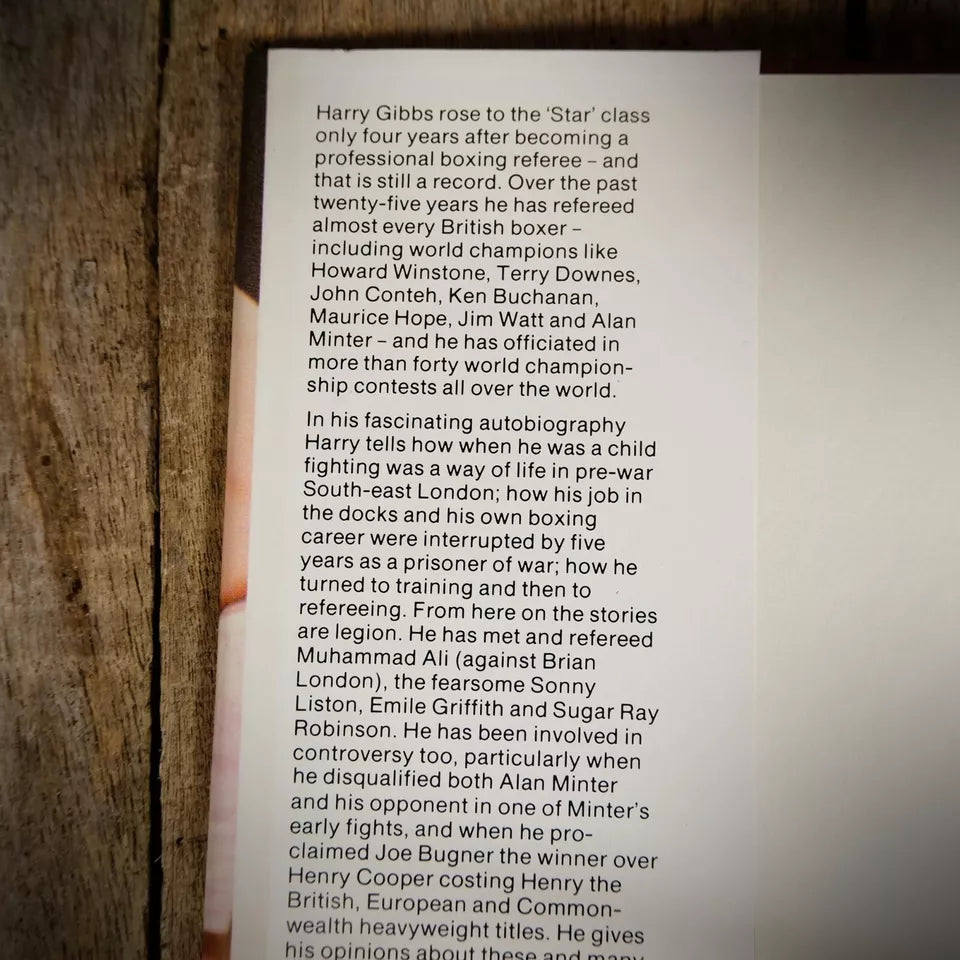 Harry Gibbs rose to the ‘Star’ class
only four years after becoming a
professional boxing referee – and
that is still a record. Over the past
twenty-five years he has refereed
almost every British boxer –
including world champions like
Howard Winstone, Terry Downes,
John Conteh, Ken Buchanan,
Maurice Hope, Jim Watt and Alan
Minter – and he has officiated in
more than forty world champion-
ship contests all over the world.
In his fascinating autobiography
Harry tells how when he was a child
fighting was a way of life in pre-war
South-east London; how his job in
the docks and his own boxing
career were interrupted by five
years as a prisoner of war; how he
turned to training and then to
refereeing. From here on the stories
are legion. He has met and refereed
Muhammad Ali (against Brian
London), the fearsome Sonny
Liston, Emile Griffith and Sugar Ray
Robinson. He has been involved in
controversy too, particularly when
he disqualified both Alan Minter
and his opponent in one of Minter’s
early fights, and when he pro-
claimed Joe Bugner the winner over
Henry Cooper costing Henry the
British, European and Common-
wealth heavyweight titles. He gives
his opinions about these and many